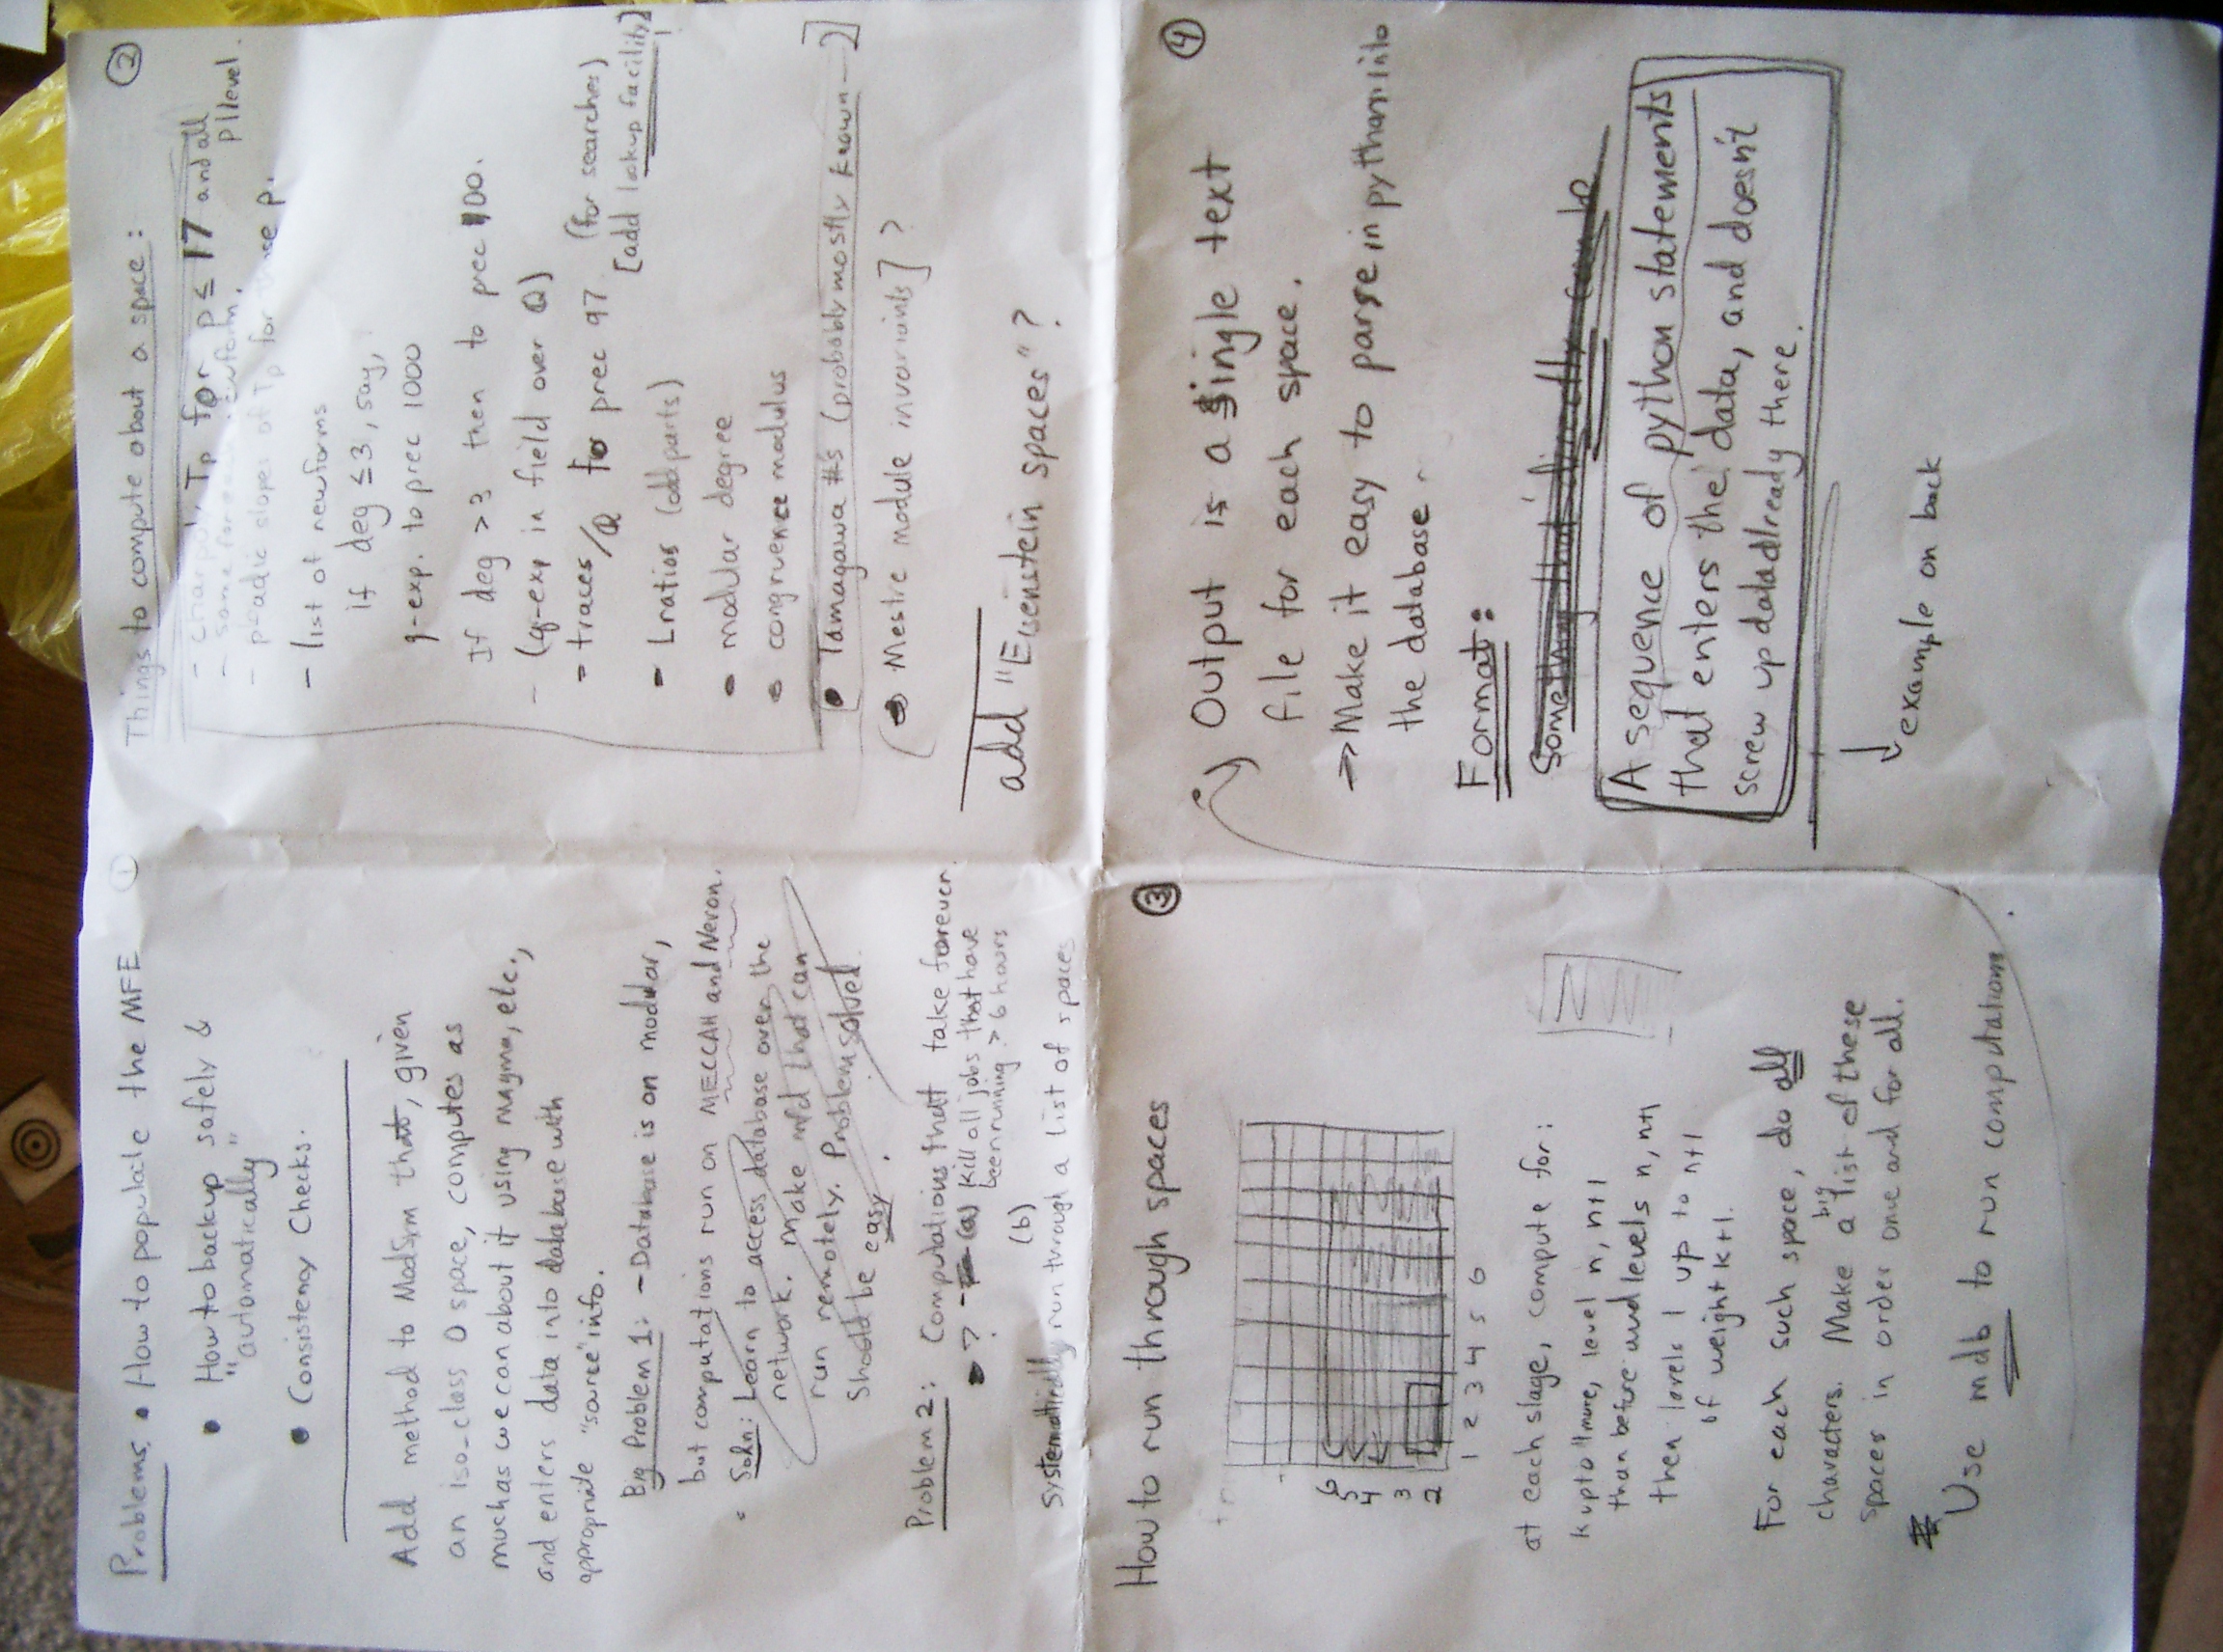 Problems • How to populate the MFE ①
• How to backup safely &
"automatically"
• Consistency Checks.
Add method to ModSym that, given
an iso_class O space, computes as
much as we can about it using magma, etc.,
and enters data into database with
appropriate "source" info.
Big Problem 1: - Database is on modular,
but computations run on MECCAH and Neron.
Soln: Learn to access database over the
network. Make mfd that can
run remotely. Problem solved.
Should be easy.
Problem 2: Computations that take forever
? - (a) kill all jobs that have
been running > 6 hours
(b)
systematically run through a list of spaces
②
Things to compute about a space:
- charpoly Tp for p ≤ 17 and all
p | level.
- same for each newform.
- p-adic slopes of Tp for those p.
- list of newforms
if deg ≤ 3, say,
q-exp. to prec 1000
If deg > 3 then to prec 100.
- (q-exp in field over Q)
- traces/Q to prec 97 (for searches)
[add lookup facility]
- Lratios (odd parts)
• modular degree
• congruence modulus
• Tamagawa #s (probably mostly known-2]
(• Mestre module invariants] ?
add "Eisenstein spaces"?
③
How to run through spaces
6
5
4
3
2
1 2 3 4 5 6
at each stage, compute for:
k up to 1 more, level n, n+1
than before and levels n, n+1
then levels 1 up to n+1
of weight k+1.
For each such space, do all
characters. Make a big list of these
spaces in order once and for all.
* Use mdb to run computations.
④
Output is a single text
file for each space.
⇒ Make it easy to parse in python into
the database.
Format:
Something that directly
A sequence of python statements
that enters the data, and doesn't
screw up data already there.
↓ example on back